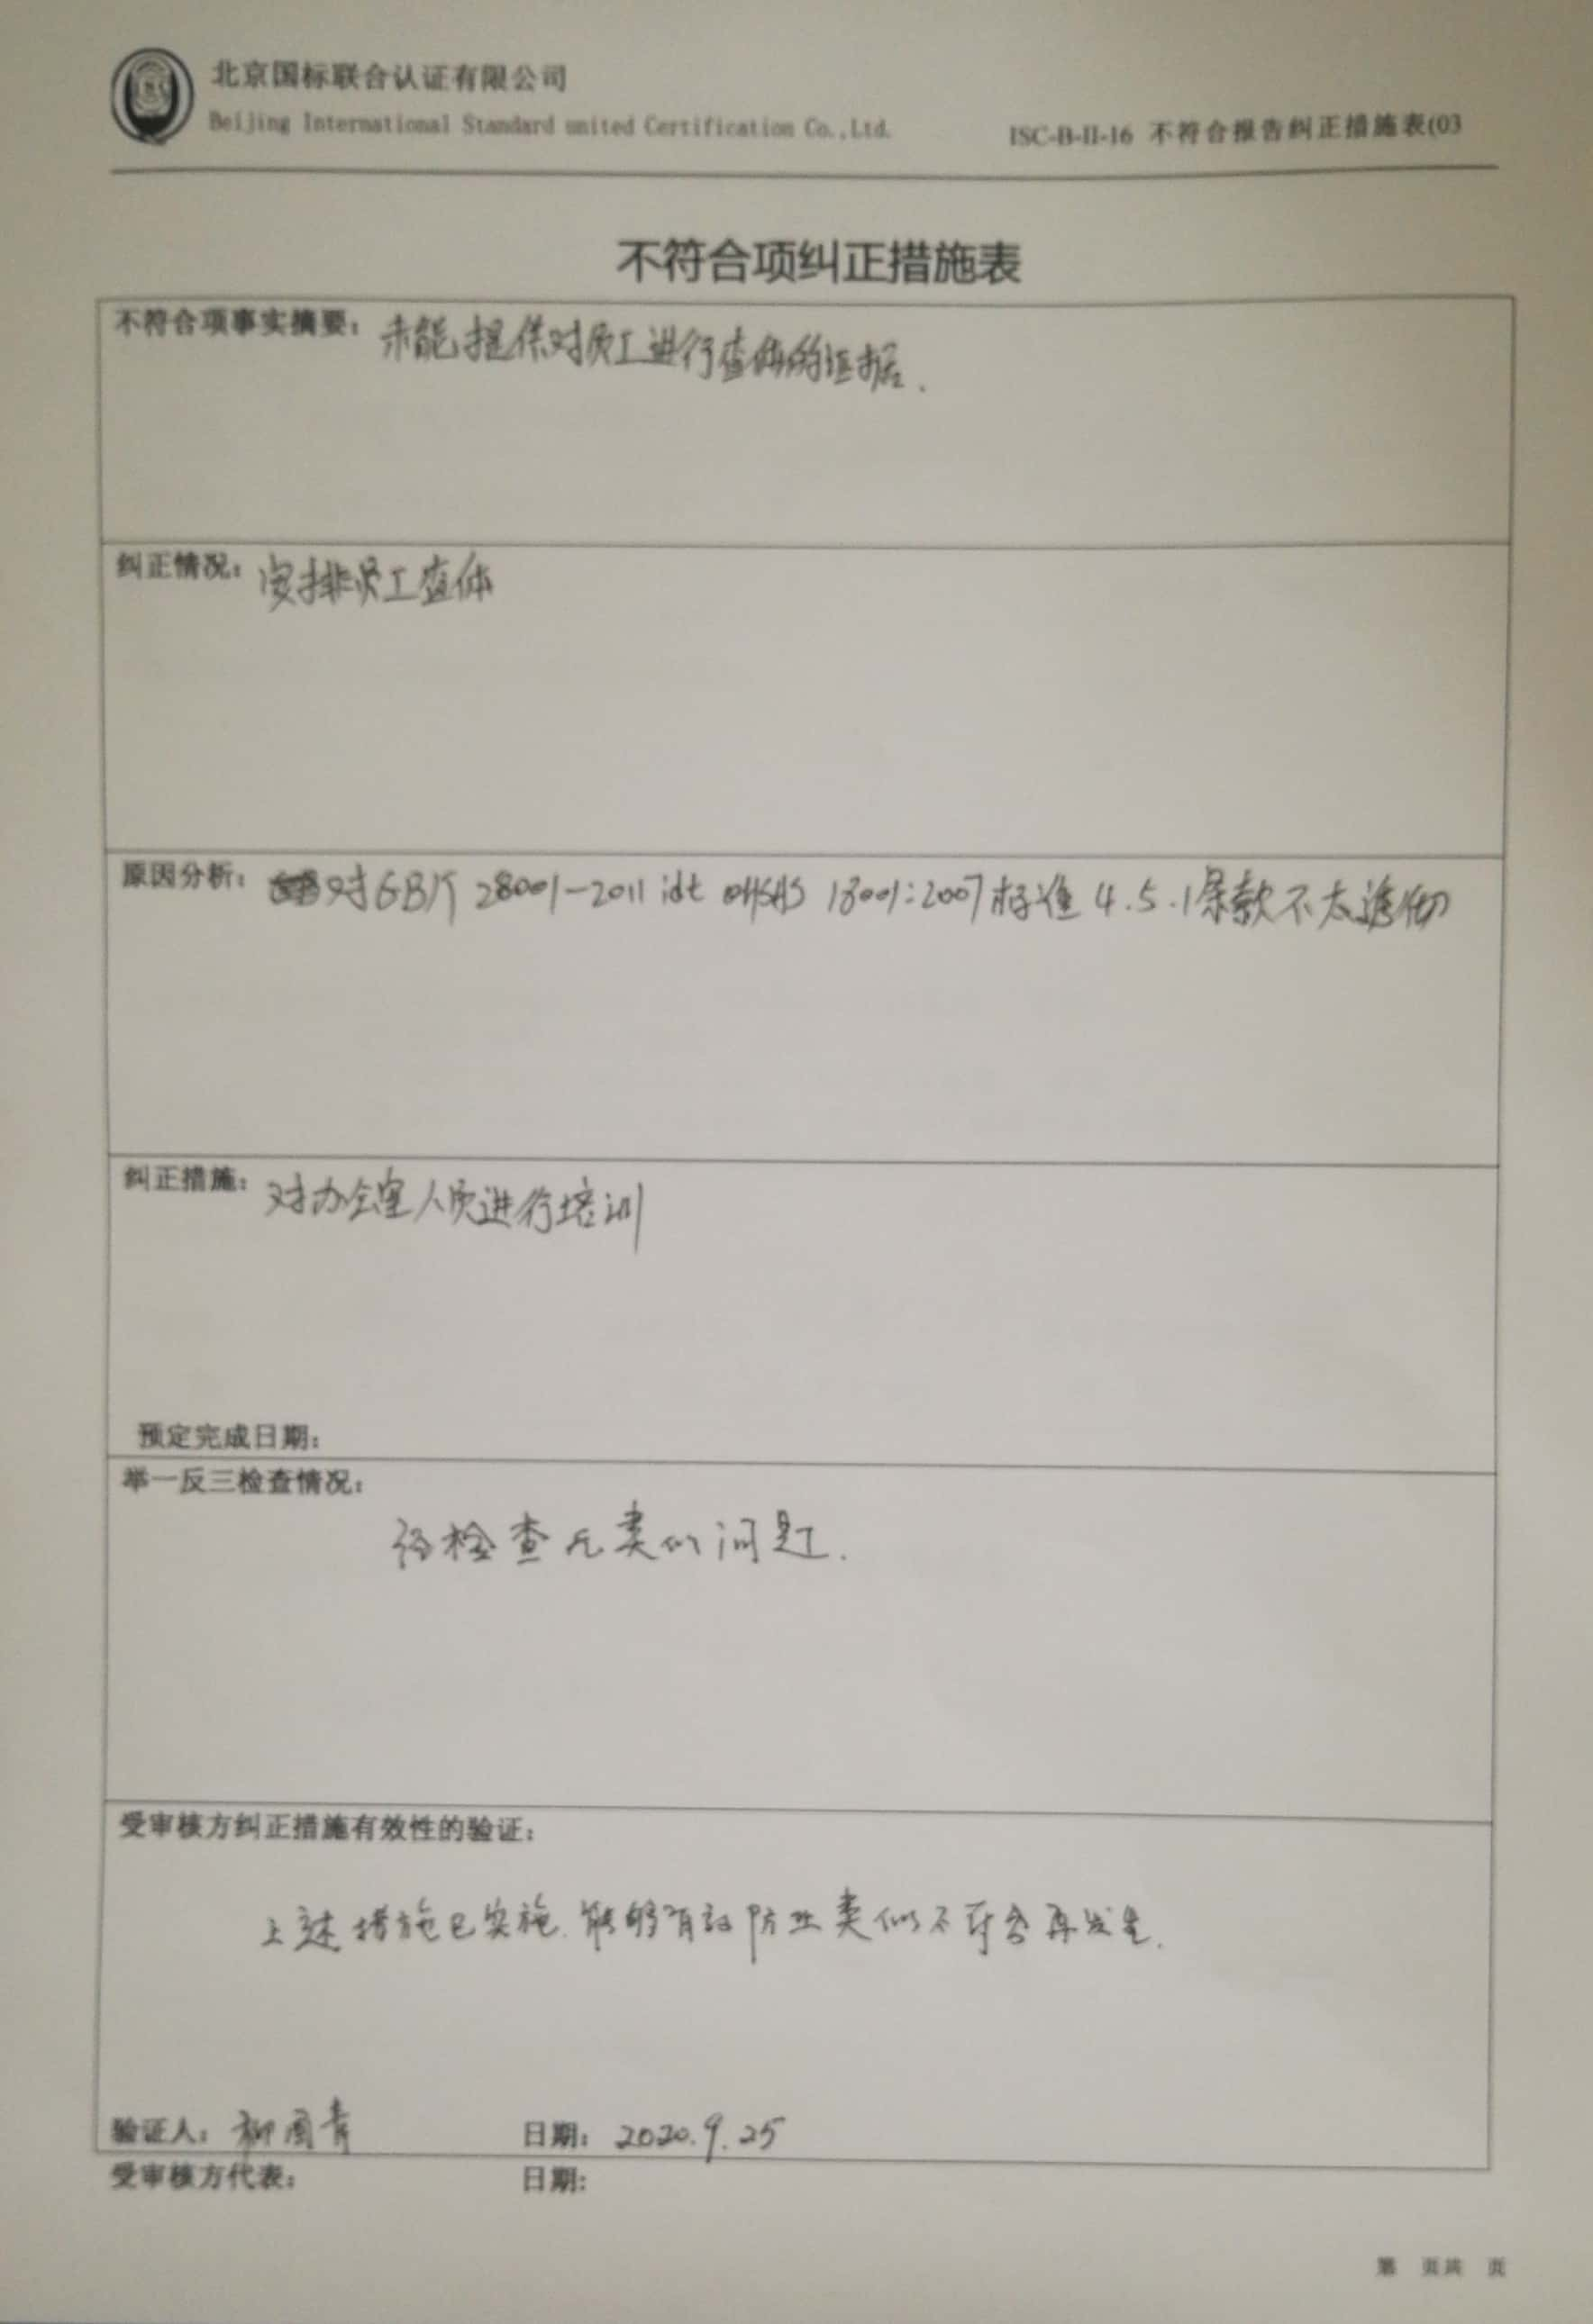 北京国标联合认证有限公司
Beijing International Standard united Certification Co.,Ltd.
ISC-B-II-16 不符合报告纠正措施表(03
不符合项纠正措施表
不符合项事实摘要：未能提供对员工进行查体的证据.
纠正情况：安排员工查体
原因分析：对GB/T 28001-2011 idt OHSAS 18001:2007标准 4.5.1条款不太透彻
纠正措施：对办公室人员进行培训
预定完成日期：
举一反三检查情况：
经检查无类似问题.
受审核方纠正措施有效性的验证：
上述措施已实施.能够有效防止类似不符合再发生.
验证人：柳国青 日期：2020.9.25
受审核方代表： 日期：
第 页共 页